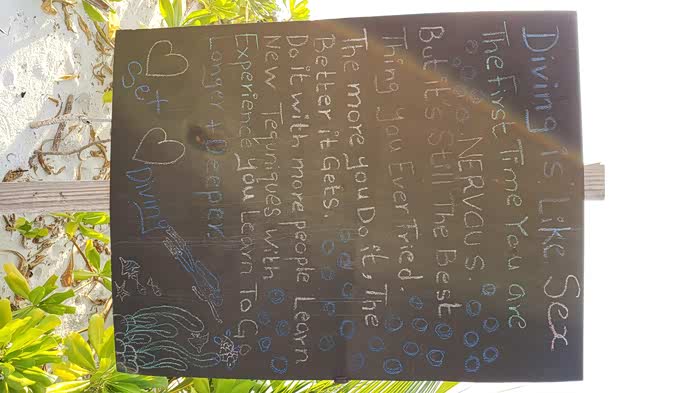 Diving is Like Sex
The First Time You are
NERVOUS.
But it's Still The Best
Thing You Ever Tried.
The more you Do it, The
Better it Gets.
Do it with more people Learn
New Tequniques with
Experience you Learn To G
Longer + Deeper.
♡ Sex
♡ Diving